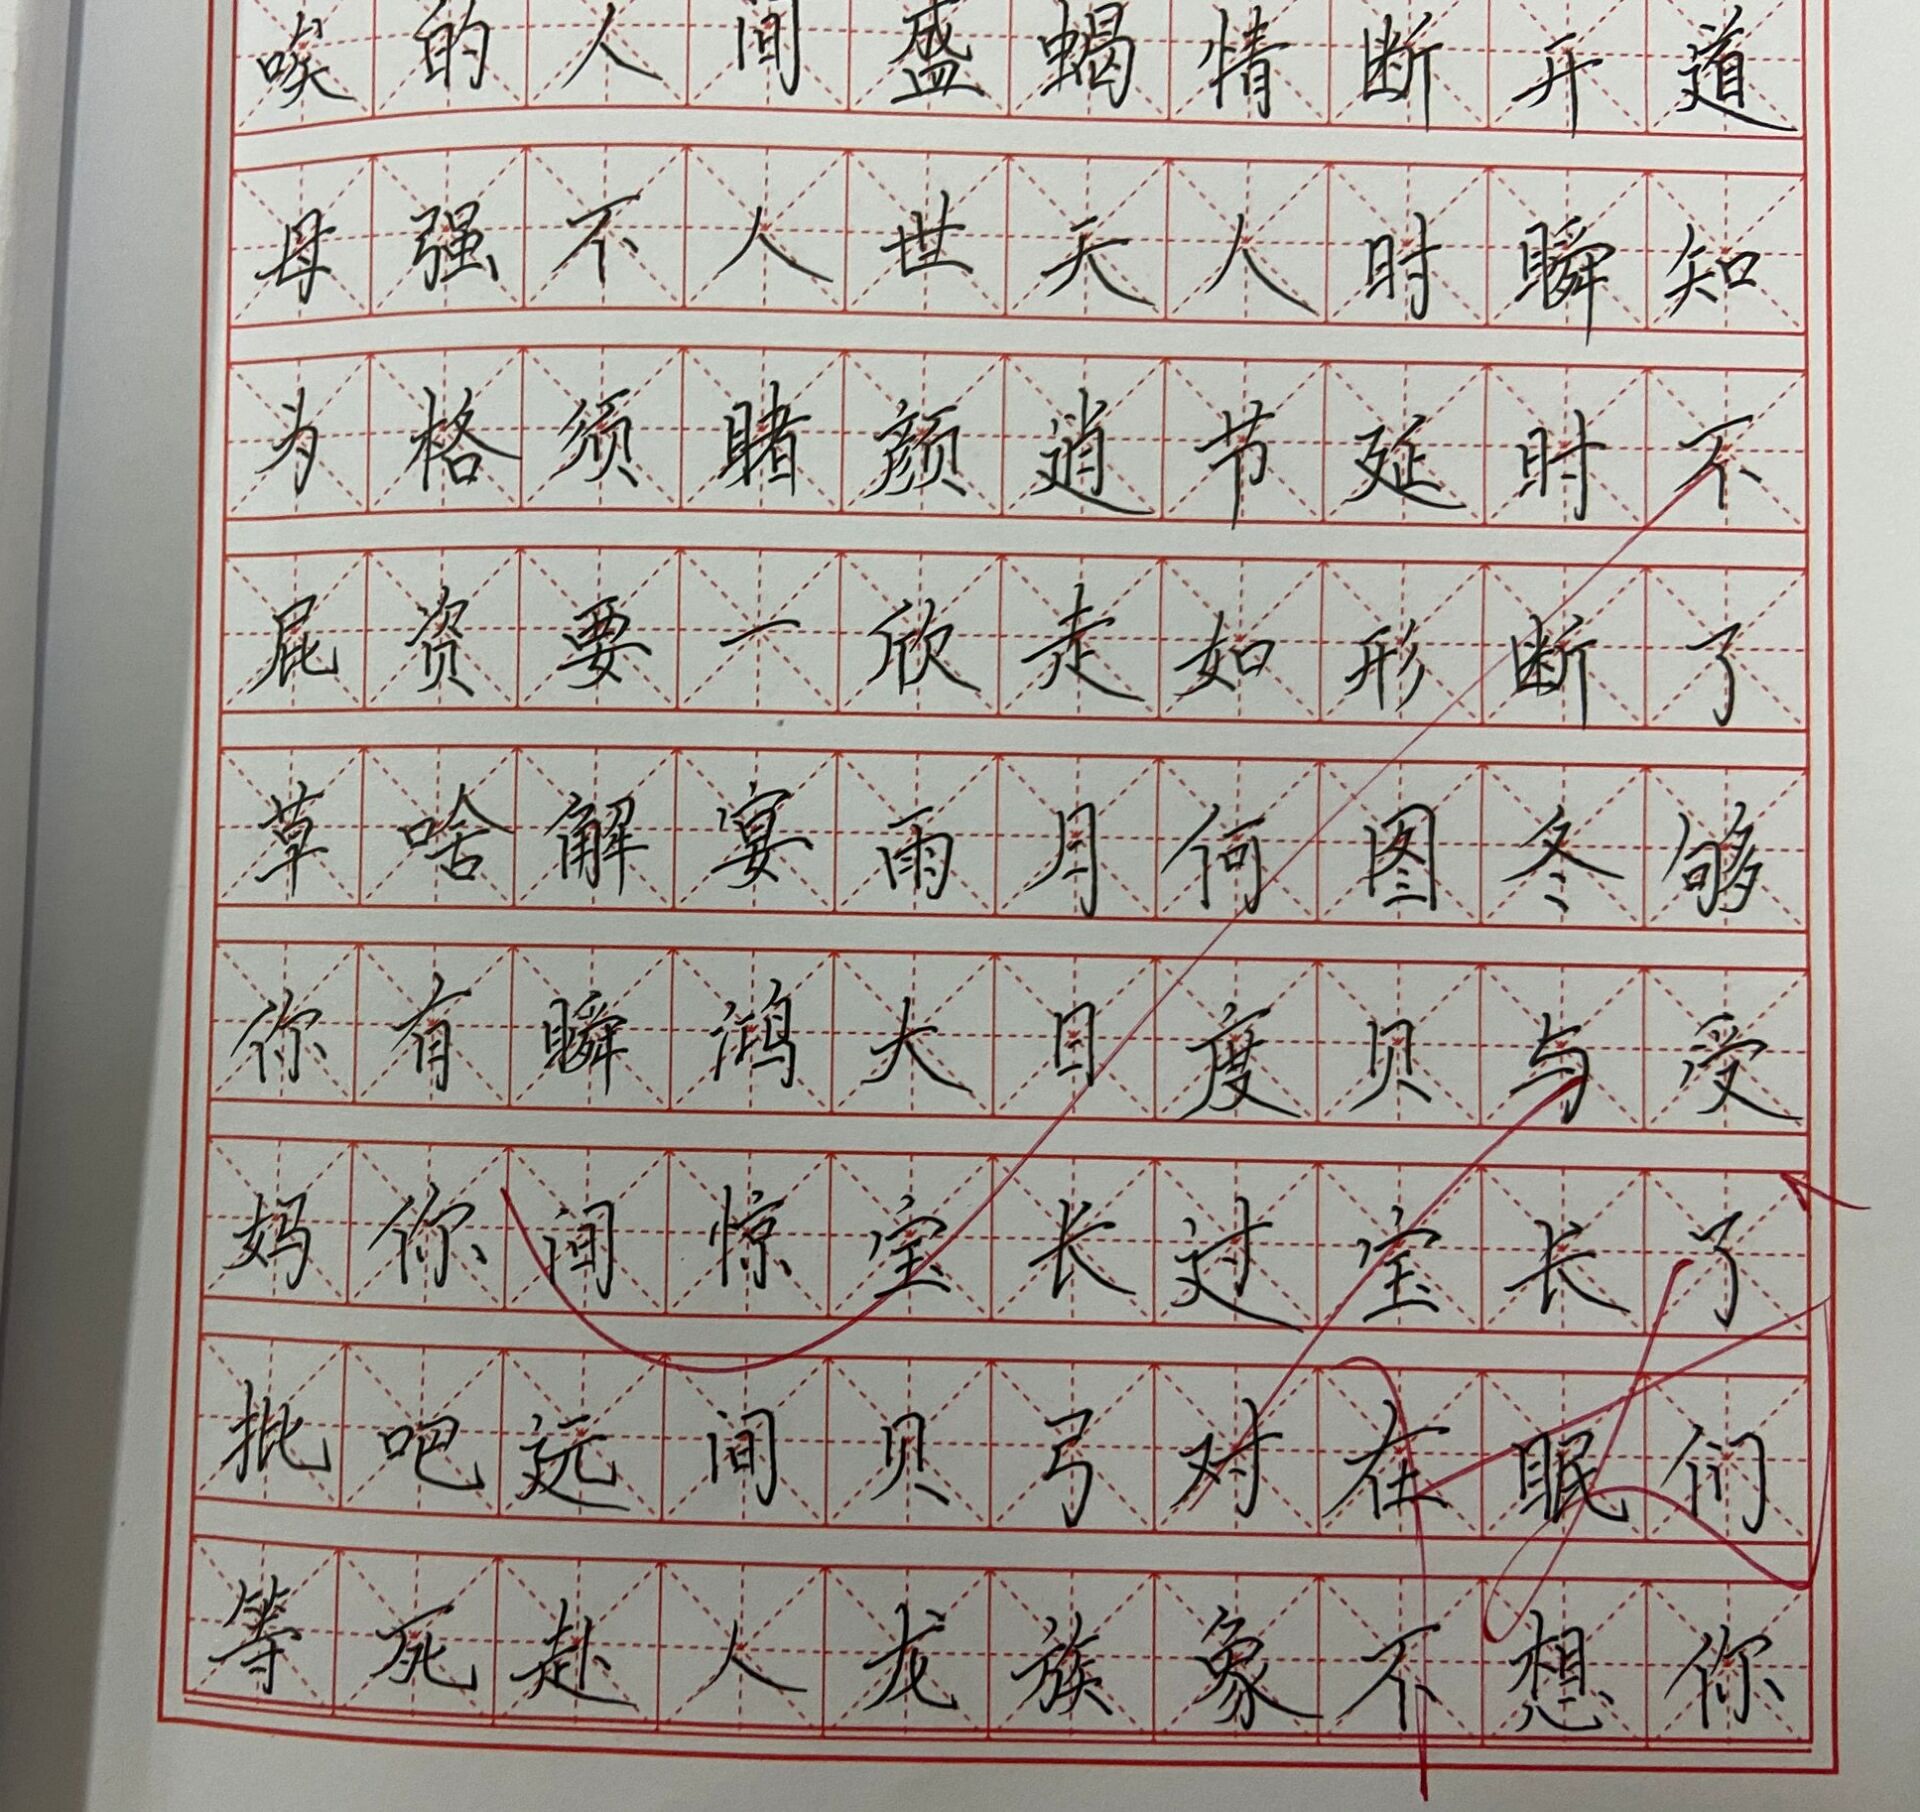 唉的人间盛蝎情断开道
母强不人世天人时瞬知
为格须睹颜逍节延时不
屁资要一欣走如形断了
草啥解宴雨月何图冬够
你有瞬鸿大日度贝与受
妈你间惊宝长过宝长了
批吧远间贝弓对在眠们
等死赴人龙族象不想你